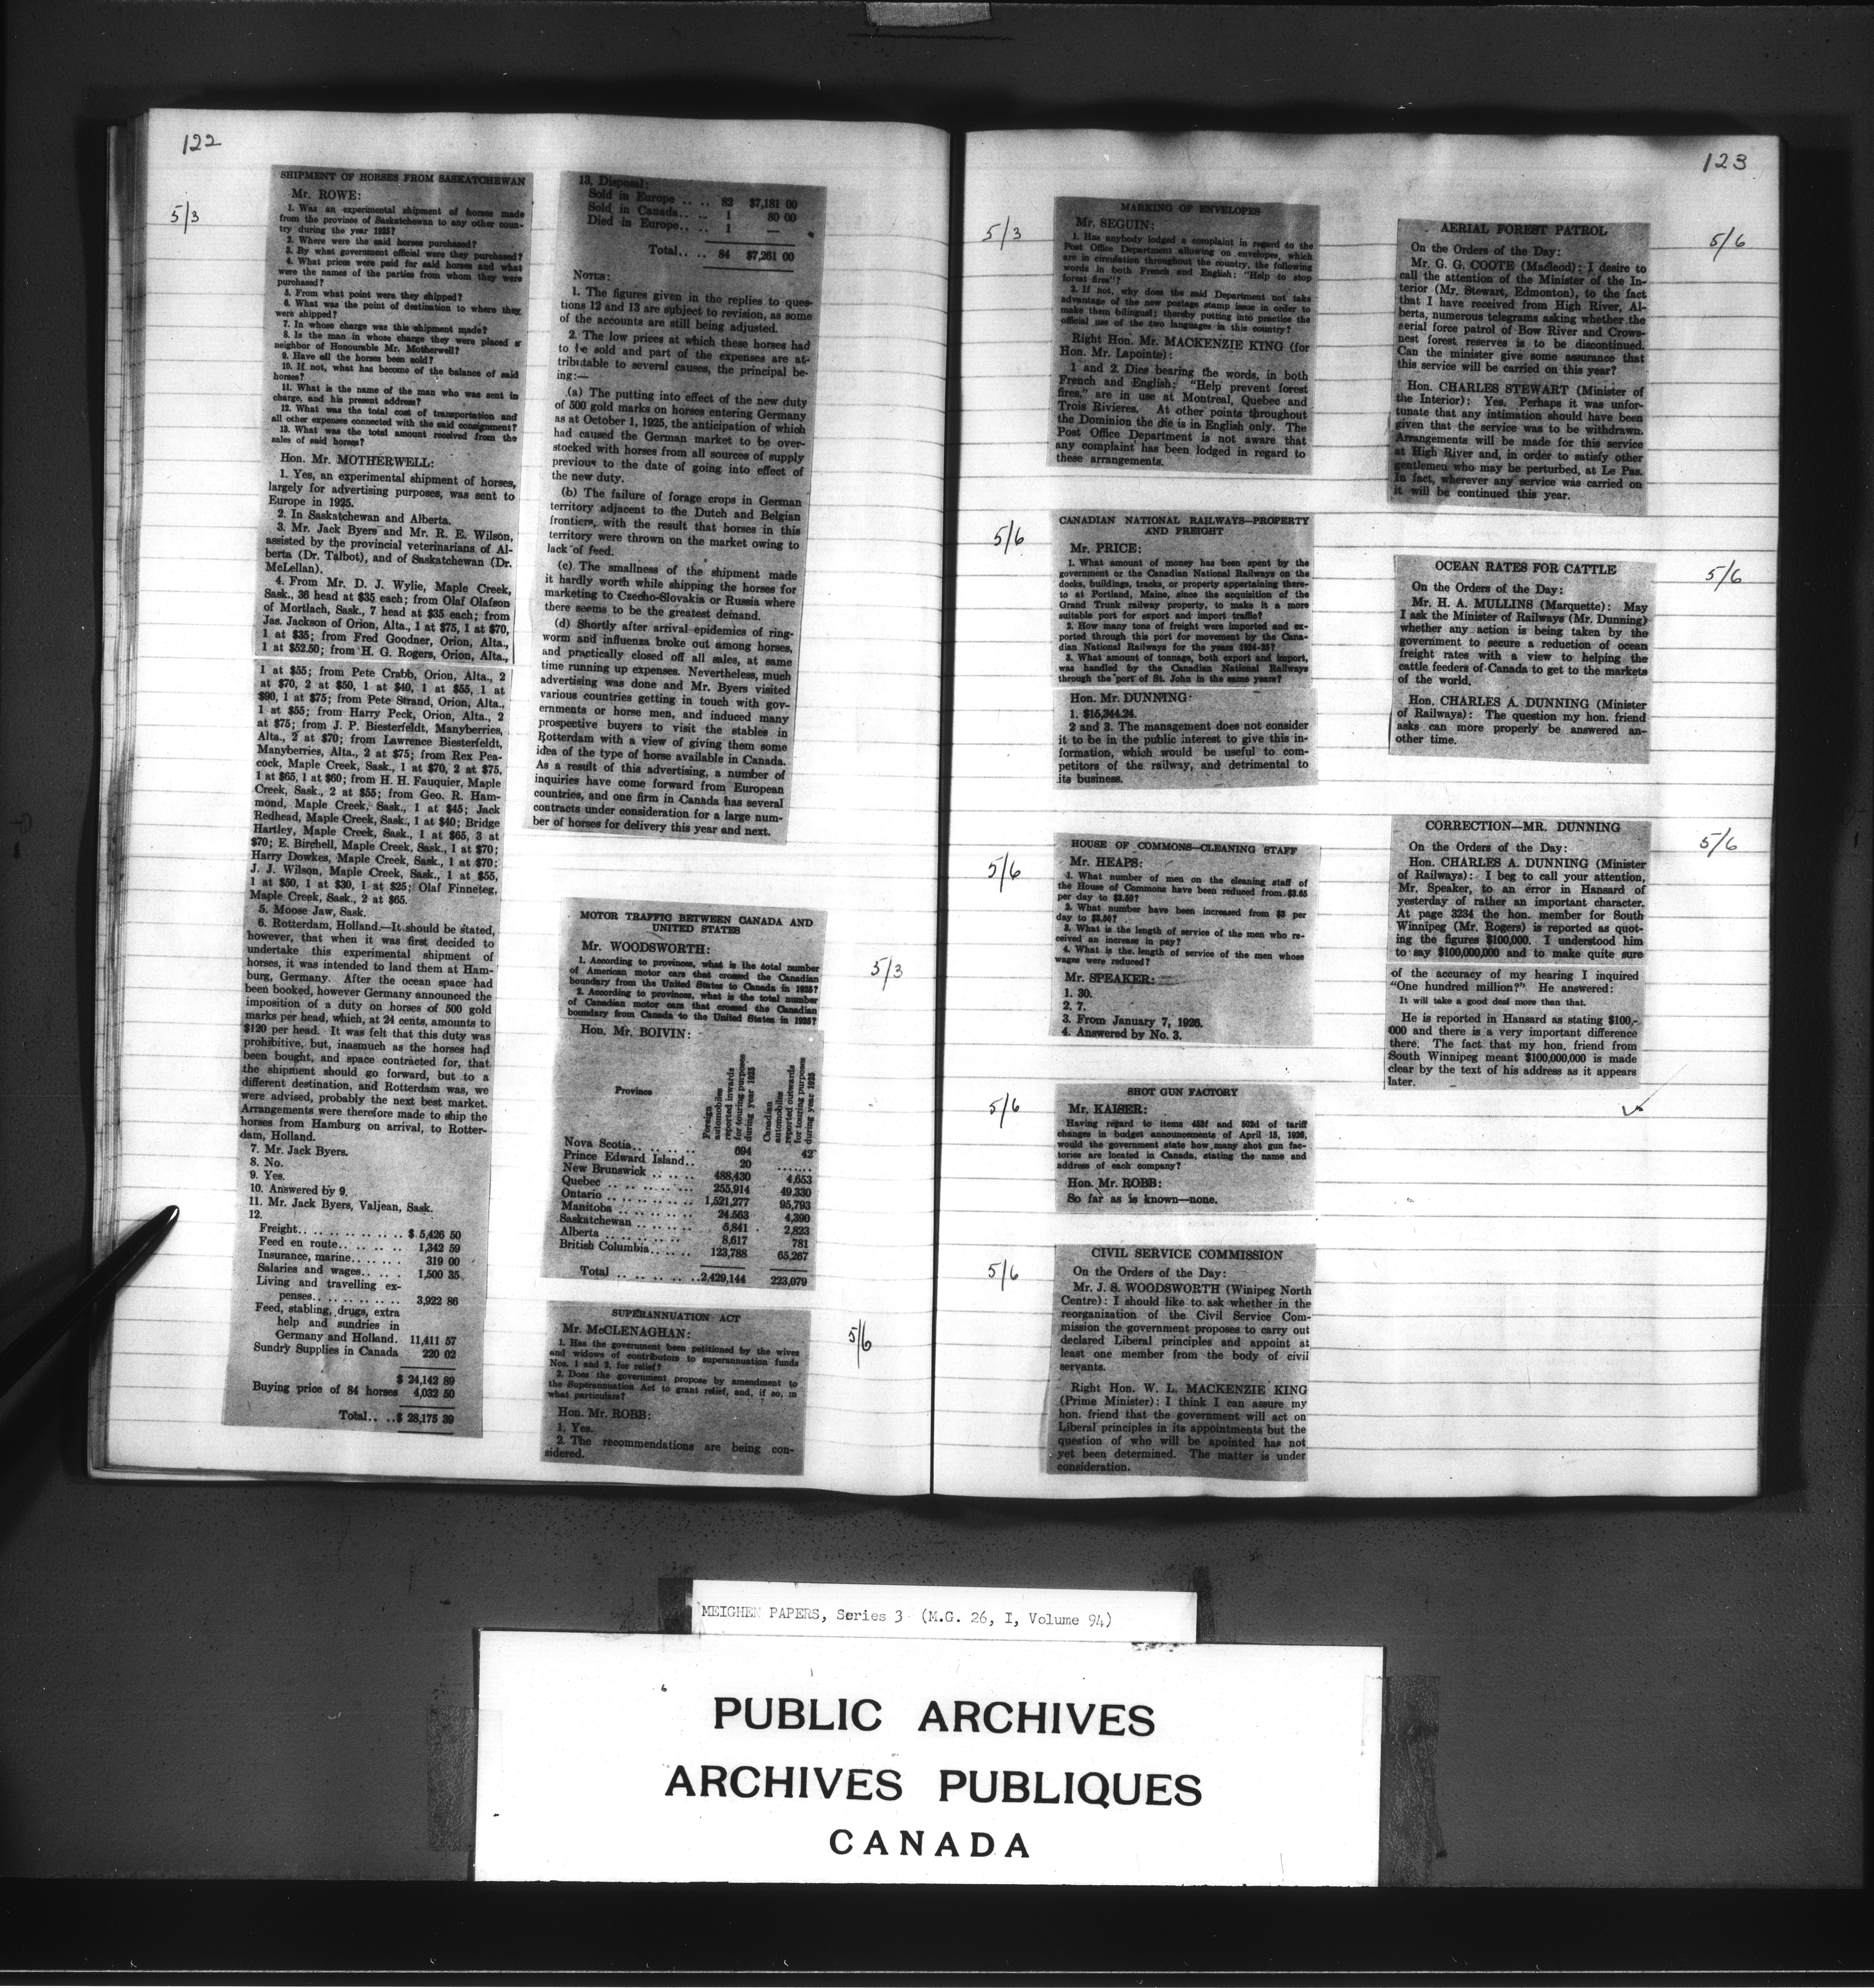 122
5/3
SHIPMENT OF HORSES FROM SASKATCHEWAN
Mr. ROWE:
1. Was an experimental shipment of horses made
from the province of Saskatchewan to any other coun-
try during the year 1925?
2. Where were the said horses purchased?
3. By what government official were they purchased?
4. What prices were paid for said horses and what
were the names of the parties from whom they were
purchased?
5. From what point were they shipped?
6. What was the point of destination to where they
were shipped?
7. In whose charge was this shipment made?
8. Is the man in whose charge they were placed a
neighbor of Honourable Mr. Motherwell?
9. Have all the horses been sold?
10. If not, what has become of the balance of said
horses?
11. What is the name of the man who was sent in
charge, and his present address?
12. What was the total cost of transportation and
all other expenses connected with the said consignment?
13. What was the total amount received from the
sales of said horses?
Hon. Mr. MOTHERWELL:
1. Yes, an experimental shipment of horses,
largely for advertising purposes, was sent to
Europe in 1925.
2. In Saskatchewan and Alberta.
3. Mr. Jack Byers and Mr. R. E. Wilson,
assisted by the provincial veterinarians of Al-
berta (Dr. Talbot), and of Saskatchewan (Dr.
McLellan).
4. From Mr. D. J. Wylie, Maple Creek,
Sask., 36 head at $35 each; from Olaf Olafson
of Mortlach, Sask., 7 head at $35 each; from
Jas. Jackson of Orion, Alta., 1 at $75, 1 at $70,
1 at $35; from Fred Goodner, Orion, Alta.,
1 at $52.50; from H. G. Rogers, Orion, Alta.,
1 at $55; from Pete Crabb, Orion, Alta., 2
at $70, 2 at $50, 1 at $40, 1 at $55, 1 at
$90, 1 at $75; from Pete Strand, Orion, Alta.,
1 at $55; from Harry Peck, Orion, Alta., 2
at $75; from J. P. Biesterfeldt, Manyberries,
Alta., 2 at $70; from Lawrence Biesterfeldt,
Manyberries, Alta., 2 at $75; from Rex Pea-
cock, Maple Creek, Sask., 1 at $70, 2 at $75,
1 at $65, 1 at $60; from H. H. Fauquier, Maple
Creek, Sask., 2 at $55; from Geo. R. Ham-
mond, Maple Creek, Sask., 1 at $45; Jack
Redhead, Maple Creek, Sask., 1 at $40; Bridge
Hartley, Maple Creek, Sask., 1 at $65, 3 at
$70; E. Birchell, Maple Creek, Sask., 1 at $70;
Harry Dowkes, Maple Creek, Sask., 1 at $70;
J. J. Wilson, Maple Creek, Sask., 1 at $55,
1 at $50, 1 at $30, 1 at $25; Olaf Finneteg,
Maple Creek, Sask., 2 at $65.
5. Moose Jaw, Sask.
6. Rotterdam, Holland.—It should be stated,
however, that when it was first decided to
undertake this experimental shipment of
horses, it was intended to land them at Ham-
burg, Germany. After the ocean space had
been booked, however Germany announced the
imposition of a duty on horses of 500 gold
marks per head, which, at 24 cents, amounts to
$120 per head. It was felt that this duty was
prohibitive, but, inasmuch as the horses had
been bought, and space contracted for, that
the shipment should go forward, but to a
different destination, and Rotterdam was, we
were advised, probably the next best market.
Arrangements were therefore made to ship the
horses from Hamburg on arrival, to Rotter-
dam, Holland.
7. Mr. Jack Byers.
8. No.
9. Yes.
10. Answered by 9.
11. Mr. Jack Byers, Valjean, Sask.
12.
Freight.. .. .. .. .. .. .. $ 5,426 50
Feed en route.. .. .. .. 1,342 59
Insurance, marine.. .. .. 319 00
Salaries and wages.. .. . 1,500 35
Living and travelling ex-
penses.. .. .. .. .. .. 3,922 86
Feed, stabling, drugs, extra
help and sundries in
Germany and Holland. 11,411 57
Sundry Supplies in Canada 220 02
$ 24,142 89
Buying price of 84 horses 4,032 50
Total.. ..$ 28,175 39
13. Disposal:
Sold in Europe .. .. 82 $7,181 00
Sold in Canada.. .. 1 80 00
Died in Europe.. .. 1 —
Total.. .. 84 $7,261 00
NOTES:
1. The figures given in the replies to ques-
tions 12 and 13 are subject to revision, as some
of the accounts are still being adjusted.
2. The low prices at which these horses had
to be sold and part of the expenses are at-
tributable to several causes, the principal be-
ing:—
(a) The putting into effect of the new duty
of 500 gold marks on horses entering Germany
as at October 1, 1925, the anticipation of which
had caused the German market to be over-
stocked with horses from all sources of supply
previous to the date of going into effect of
the new duty.
(b) The failure of forage crops in German
territory adjacent to the Dutch and Belgian
frontiers, with the result that horses in this
territory were thrown on the market owing to
lack of feed.
(c) The smallness of the shipment made
it hardly worth while shipping the horses for
marketing to Czecho-Slovakia or Russia where
there seems to be the greatest demand.
(d) Shortly after arrival epidemics of ring-
worm and influenza broke out among horses,
and practically closed off all sales, at same
time running up expenses. Nevertheless, much
advertising was done and Mr. Byers visited
various countries getting in touch with gov-
ernments or horse men, and induced many
prospective buyers to visit the stables in
Rotterdam with a view of giving them some
idea of the type of horse available in Canada.
As a result of this advertising, a number of
inquiries have come forward from European
countries, and one firm in Canada has several
contracts under consideration for a large num-
ber of horses for delivery this year and next.
5/3
MOTOR TRAFFIC BETWEEN CANADA AND
UNITED STATES
Mr. WOODSWORTH:
1. According to provinces, what is the total number
of American motor cars that crossed the Canadian
boundary from the United States to Canada in 1925?
2. According to provinces, what is the total number
of Canadian motor cars that crossed the Canadian
boundary from Canada to the United States in 1925?
Hon. Mr. BOIVIN:
Province
Foreign automobiles reported inwards for touring purposes during year 1925
Canadian automobiles reported outwards for touring purposes during year 1925
Nova Scotia.. .. .. .. 694 42
Prince Edward Island.. 20 .......
New Brunswick .. .. .. 488,430 4,653
Quebec .. .. .. .. .. 255,914 49,330
Ontario .. .. .. .. .. 1,521,277 95,793
Manitoba .. .. .. .. 24,563 4,390
Saskatchewan .. .. .. 5,841 2,823
Alberta .. .. .. .. .. 8,617 781
British Columbia.. .. .. 123,788 65,267
Total .. .. .. .. ..2,429,144 223,079
5/6
SUPERANNUATION ACT
Mr. McCLENAGHAN:
1. Has the government been petitioned by the wives
and widows of contributors to superannuation funds
Nos. 1 and 2, for relief?
2. Does the government propose by amendment to
the Superannuation Act to grant relief, and, if so, in
what particulars?
Hon. Mr. ROBB:
1. Yes.
2. The recommendations are being con-
sidered.
123
5/3
MARKING OF ENVELOPES
Mr. SEGUIN:
1. Has anybody lodged a complaint in regard to the
Post Office Department allowing on envelopes, which
are in circulation throughout the country, the following
words in both French and English: "Help to stop
forest fires"?
2. If not, why does the said Department not take
advantage of the new postage stamp issue in order to
make them bilingual; thereby putting into practice the
official use of the two languages in this country?
Right Hon. Mr. MACKENZIE KING (for
Hon. Mr. Lapointe):
1 and 2. Dies bearing the words, in both
French and English; "Help prevent forest
fires," are in use at Montreal, Quebec and
Trois Rivieres. At other points throughout
the Dominion the die is in English only. The
Post Office Department is not aware that
any complaint has been lodged in regard to
these arrangements.
5/6
CANADIAN NATIONAL RAILWAYS—PROPERTY
AND FREIGHT
Mr. PRICE:
1. What amount of money has been spent by the
government or the Canadian National Railways on the
docks, buildings, tracks, or property appertaining there-
to at Portland, Maine, since the acquisition of the
Grand Trunk railway property, to make it a more
suitable port for export and import traffic?
2. How many tons of freight were imported and ex-
ported through this port for movement by the Cana-
dian National Railways for the years 1924-25?
3. What amount of tonnage, both export and import,
was handled by the Canadian National Railways
through the port of St. John in the same years?
Hon. Mr. DUNNING:
1. $15,344.24.
2 and 3. The management does not consider
it to be in the public interest to give this in-
formation, which would be useful to com-
petitors of the railway, and detrimental to
its business.
5/6
HOUSE OF COMMONS—CLEANING STAFF
Mr. HEAPS:
1. What number of men on the cleaning staff of
the House of Commons have been reduced from $3.65
per day to $3.50?
2. What number have been increased from $3 per
day to $3.50?
3. What is the length of service of the men who re-
ceived an increase in pay?
4. What is the length of service of the men whose
wages were reduced?
Mr. SPEAKER:
1. 30.
2. 7.
3. From January 7, 1926.
4. Answered by No. 3.
5/6
SHOT GUN FACTORY
Mr. KAISER:
Having regard to items 453f and 502d of tariff
changes in budget announcements of April 15, 1926,
would the government state how many shot gun fac-
tories are located in Canada, stating the name and
address of each company?
Hon. Mr. ROBB:
So far as is known—none.
5/6
CIVIL SERVICE COMMISSION
On the Orders of the Day:
Mr. J. S. WOODSWORTH (Winipeg North
Centre): I should like to ask whether in the
reorganization of the Civil Service Com-
mission the government proposes to carry out
declared Liberal principles and appoint at
least one member from the body of civil
servants.
Right Hon. W. L. MACKENZIE KING
(Prime Minister): I think I can assure my
hon. friend that the government will act on
Liberal principles in its appointments but the
question of who will be apointed has not
yet been determined. The matter is under
consideration.
5/6
AERIAL FOREST PATROL
On the Orders of the Day:
Mr. G. G. COOTE (Macleod): I desire to
call the attention of the Minister of the In-
terior (Mr. Stewart, Edmonton), to the fact
that I have received from High River, Al-
berta, numerous telegrams asking whether the
aerial force patrol of Bow River and Crows-
nest forest reserves is to be discontinued.
Can the minister give some assurance that
this service will be carried on this year?
Hon. CHARLES STEWART (Minister of
the Interior): Yes. Perhaps it was unfor-
tunate that any intimation should have been
given that the service was to be withdrawn.
Arrangements will be made for this service
at High River and, in order to satisfy other
gentlemen who may be perturbed, at Le Pas.
In fact, wherever any service was carried on
it will be continued this year.
5/6
OCEAN RATES FOR CATTLE
On the Orders of the Day:
Mr. H. A. MULLINS (Marquette): May
I ask the Minister of Railways (Mr. Dunning)
whether any action is being taken by the
government to secure a reduction of ocean
freight rates with a view to helping the
cattle feeders of Canada to get to the markets
of the world.
Hon. CHARLES A. DUNNING (Minister
of Railways): The question my hon. friend
asks can more properly be answered an-
other time.
5/6
CORRECTION—MR. DUNNING
On the Orders of the Day:
Hon. CHARLES A. DUNNING (Minister
of Railways): I beg to call your attention,
Mr. Speaker, to an error in Hansard of
yesterday of rather an important character.
At page 3234 the hon. member for South
Winnipeg (Mr. Rogers) is reported as quot-
ing the figures $100,000. I understood him
to say $100,000,000 and to make quite sure
of the accuracy of my hearing I inquired
"One hundred million?" He answered:
It will take a good deal more than that.
He is reported in Hansard as stating $100,-
000 and there is a very important difference
there. The fact that my hon. friend from
South Winnipeg meant $100,000,000 is made
clear by the text of his address as it appears
later.
MEIGHEN PAPERS, Series 3 (M.G. 26, I, Volume 94)
PUBLIC ARCHIVES
ARCHIVES PUBLIQUES
CANADA